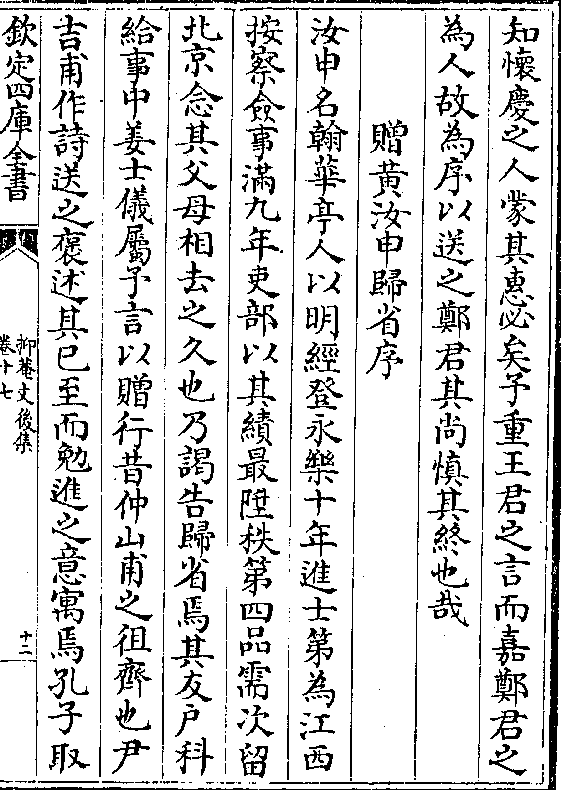 知懷慶之人蒙其惠必矣予重王君之言而嘉鄭君之
為人故為序以送之鄭君其尚慎其終也哉
贈黃汝申歸省序
汝申名翰華亭人以明經登永樂十年進士第為江西
按察僉事滿九年吏部以其績最陞秩第四品需次留
北京念其父母相去之久也乃謁告歸省焉其友户科
給事中姜士儀屬予言以贈行昔仲山甫之徂齊也尹
吉甫作詩送之褒述其已至而勉進之意寓焉孔子取
欽定四庫全書
抑菴文後集
卷十七
十二